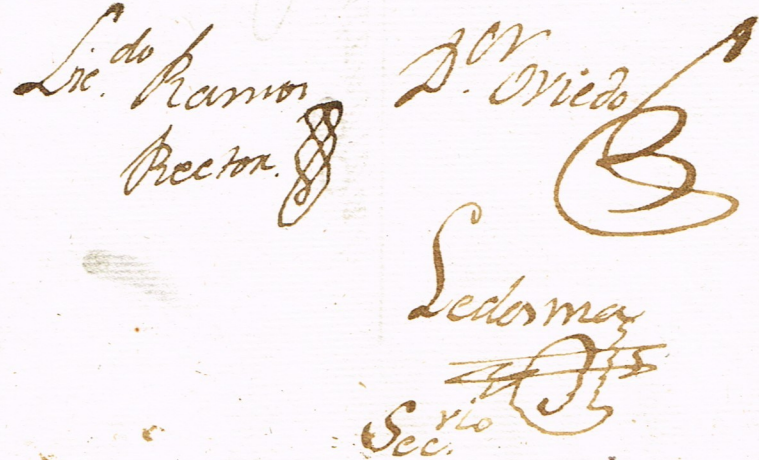 Lic.do Ramos
Rector.
D.or Oviedo
Ledesma
Sec.rio